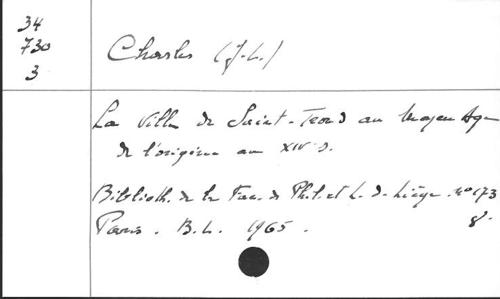 34
730
3
Charles (J-L.)
La Ville de Saint-Trond au Moyen Age
de l'origine au XIV s.
Biblioth. de la Fac. de Phil. et L. de Liège. No 173
Paris. B.L. 1965. 8°